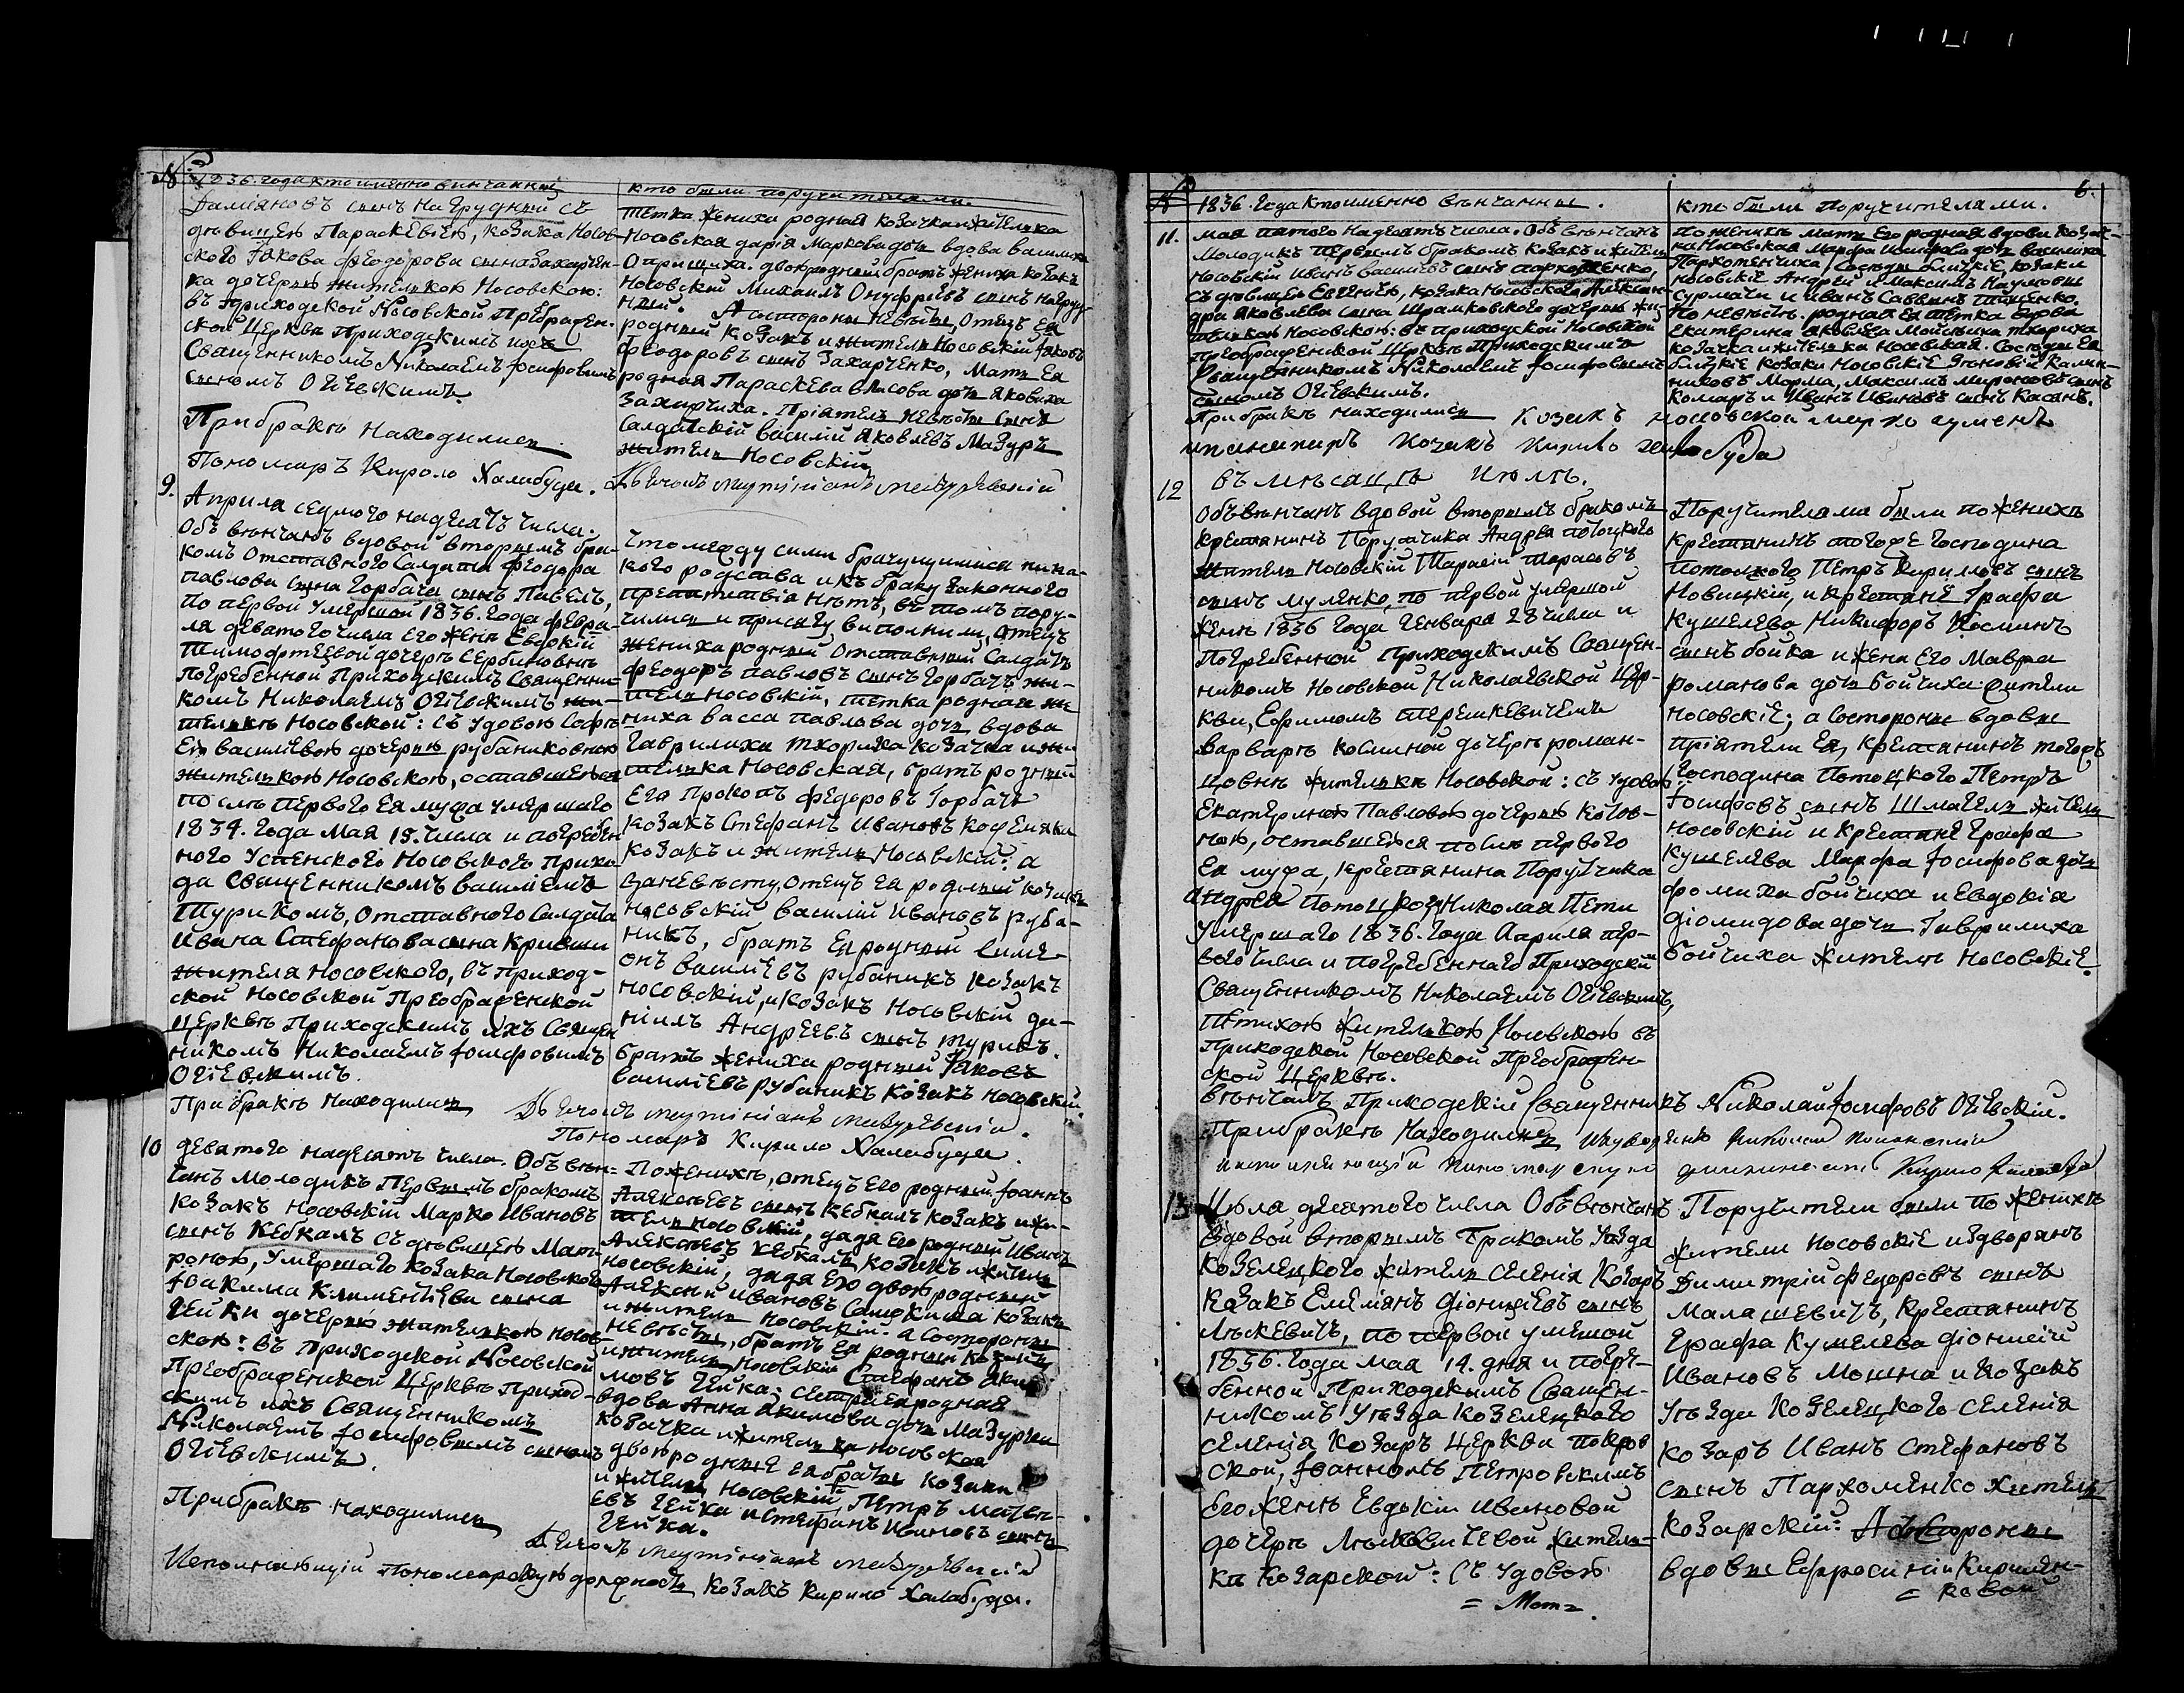 №
1836. года кто именно винчанный
Даміяновъ сынъ Нагрудный съ
дѣвицею Параскевіею, козака Носов-
ского Іакова Феодорова сына Захарчен-
ка дочерью жителькою Носовскою:
въ приходской Носовской Преображен-
ской Церквѣ Приходскимъ ихъ
Священникомъ Николаемъ Іосифовымъ
сыномъ Огіевскимъ.
При бракѣ находились
Пономаръ Кирило Халабуда.
кто были поручителями.
тетка жениха родная козачка и жителька
Носовская дарія Маркова дочь вдова
двоюродный братъ жениха козакъ
Носовскій Михаилъ Онуфріевъ сынъ Нагруд-
ный. А стороны невѣсты, Отецъ ея
родный козакъ и житель Носовскій Іаковъ
Феодоровъ сынъ Захарченко, Мать ея
родная Параскева власова дочь яковиха
Захарчиха. Пріятель невѣсты сынъ
Салдатскій василій Яковлевъ Мазуръ
житель Носовскій
9.
Априля седмого надесять числа.
Объ вѣнчанъ вдовой вторымъ бра-
комъ Отставного Салдата Феодора
павлова сына Горбача сынъ Павелъ,
По первой умершой 1836. года февра-
ля девятого числа его женѣ Евдокіи
Тимофтеевой дочерѣ Сербиновнѣ
погребенной Приходскимъ Священни-
комъ Николаемъ Огіевскимъ жи-
телькѣ Носовской: съ удовою Софі-
ею василіевою дочерью рубаниковною
жителькою Носовскою, оставшеюся
послѣ первого ея мужа умершаго
1834. года Мая 15. числа и погребен
ного Успенского Носовского прихо-
да Священникомъ василіемъ
Турикомъ, Отставного Салдата
Ивана Стефанова сына Кривши
жителя Носовского, въ приход-
ской Носовской Преображенской
Церквѣ Приходскимъ ихъ Священ
никомъ Николаемъ Іосифовымъ
Огіевскимъ.
При бракѣ находились
Что между сими брачущимися ника-
кого родства и къ браку законного
препятствія нѣтъ, въ томъ пору-
чились и присягу виполнили, Отецъ
жениха родный Отставный Салдатъ
Феодоръ павловъ сынъ Горбачъ жи-
тель Носовскій, тетка родная же
ниха васса павлова дочь вдова
Гаврилиха Тхориха козачка и жи-
телька Носовская, братъ родный
Его Прокопъ Федоровъ Горбачъ
козакъ Стефанъ Ивановъ Кожемяка
козакъ и житель Носовскій: а
за невѣсту, Отецъ ея родный козакъ
Носовскій василій Ивановъ руба-
никъ, братъ Ея родный Симе-
онъ василіевъ рубаникъ козакъ
носовскій, и козакъ Носовскій да-
ніилъ Андреевъ сынъ турикъ.
братъ жениха родный Іаковъ
василіевъ рубаникъ козакъ Носовскій.
Пономаръ Кирило Халабуда.
10
девятого надесять числа. Объ вѣн-
чанъ молодикъ Первымъ бракомъ
козакъ носовскій Марко Ивановъ
сынъ Кебкалъ съ дѣвицею Мат-
роною, умершаго козака Носовского
Іоакима Климентіева сына
Гейки дочерью жителькою Носов
скою: въ приходской Носовской
Преображенской Церквѣ Приход-
скимъ ихъ Священникомъ
Николаемъ Іосифовымъ сыномъ
Огіевскимъ.
При бракѣ находились
По жениху, отецъ его родный Іоаннъ
Алексѣевъ сынъ Кебкалъ козакъ и жи-
тель носовскій, дядя его родный Иванъ
Алексѣевъ Кебкалъ козакъ и житель
носовскій, дядя его двоюродный
Алексѣй Ивановъ козакъ
и житель Носовскій: а стороны
невѣсты, братъ ея родный козакъ
и житель Носовскій Стефанъ Аки-
мовъ Гейка: сестра ея родная
вдова Анна Акимова дочь Мазурка
козачка и жителька носовская
двоюродные ея братья козаки
и жители Носовскій, Петръ Матве-
евъ Гейка и Стефанъ Ивановъ сынъ
Гейка.
Исполняющій Пономарскую должность козакъ Кирило Халабуда.
№
1836. года кто именно вѣнчанны.
6.
кто были поручителями.
11.
мая пятого надесять числа. Объ вѣнчанъ
Молодикъ Первымъ бракомъ козакъ и житель
носовскій Иванъ василіевъ сынъ пархоменко,
съ дѣвицею Евгеніею, козака Носовского Алексан-
дра яковлева сына Шрамковского дочерью жи-
телькою Носовскою: въ приходской Носовской
Преображенской Церквѣ Приходскимъ
Священикомъ Николаемъ Іосифовымъ
сыномъ Огіевскимъ.
При бракѣ находились козакъ носовской
козакъ Кирило
по жениху мать его родная вдова козач-
ка Носовская Марфа дочь василиха
Пархоменчиха, Сосѣды близкіе, козаки
носовскіе Андрей и Максимъ Наумовы
Сурмачи и Иванъ Саввинъ тищенко.
По невѣстѣ. родная ея тетка вдова
Екатерина яковлева Мойсіиха тхориха
козачка и жителька Носовская. Сосѣды Ея
близкіе козаки Носовскіе Зѣновій Калин-
никовъ Морма, Максимъ мироновъ сынъ
комаръ и Иванъ Ивановъ сынъ Касянъ.
12
въ мѣсяцѣ Июлѣ.
Объвѣнчанъ вдовой вторымъ бракомъ
крестянинъ Поручика Андрея потоцкого
житель Носовскій Тарасій Тарасовъ
сынъ муленко, по первой умершой
женѣ 1836 года Генваря 28 числа и
Погребенной Приходскимъ Священ-
никомъ Носовской Николаевской Цер-
кви, Ефримомъ терешкевичемъ
варварѣ космной дочерѣ роман-
цовнѣ жителькѣ Носовской: съ удовою
Екатериною Павловою дочерью котов-
ною, оставшеюся послѣ первого
ея мужа, крестянина Поручика
Андрея потоцкого, Николая Пети
умершаго 1836. года Априля пер-
вого числа и погребенного Приходскимъ
Священникомъ Николаемъ Огіевскимъ,
Петихою жителькою Носовскою въ
Приходской Носовской Преображен-
ской Церквѣ.
вѣнчалъ Приходскій Священникъ Николай Іосифовъ Огіевскій.
При бракѣ находились
Поручителями были по жениху
крестянинъ тогоже господина
потоцкого Петръ Кириловъ сынъ
Новицкій, и крестяне Графа
Кушелева Никифоръ Космынъ
сынъ бойка и жена его Мавра
романова дочь бойчиха жители
носовскіе; а со стороны вдовы
пріятели ея, крестянинъ тогожъ
Господина Потоцкого Петръ
Іосифовъ сынъ Шмагель житель
носовскій и крестяне Графа
Кушелева Марфа Іосифова дочь
фомиха бойчиха и Евдокія
діомидова дочь Гаврилиха
бойчиха жители Носовскіе.
13
Июля десятого числа Объвѣнчанъ
Вдовой вторымъ бракомъ Уезда
Козелецкого житель селенія Козаръ
козакъ Емеліянъ діонисіевъ сынъ
Лѣскевичъ, по первой умершой
1836. года мая 14. дня и погре-
бенной Приходскимъ Священ-
никомъ Уѣзда козелецкого
селенія козаръ Церкви покров
ской, Іоанномъ Петровскимъ
Его женѣ Евдокіи ивановой
дочерѣ Лѣскевичевой житель-
кѣ козарской: съ удовою
Поручители были по жениху
жители Носовскіе издворянъ
Димитрій Федоровъ сынъ
Малашевичъ, крестянинъ
Графа Кушелева діонисій
Ивановъ Мошна и козакъ
Уѣзда Козелецкого селенія
козаръ Иванъ Стефановъ
сынъ Пархоменко житель
козарскій: А стороны
вдовы Ефросиніи Кириен-
= ковой